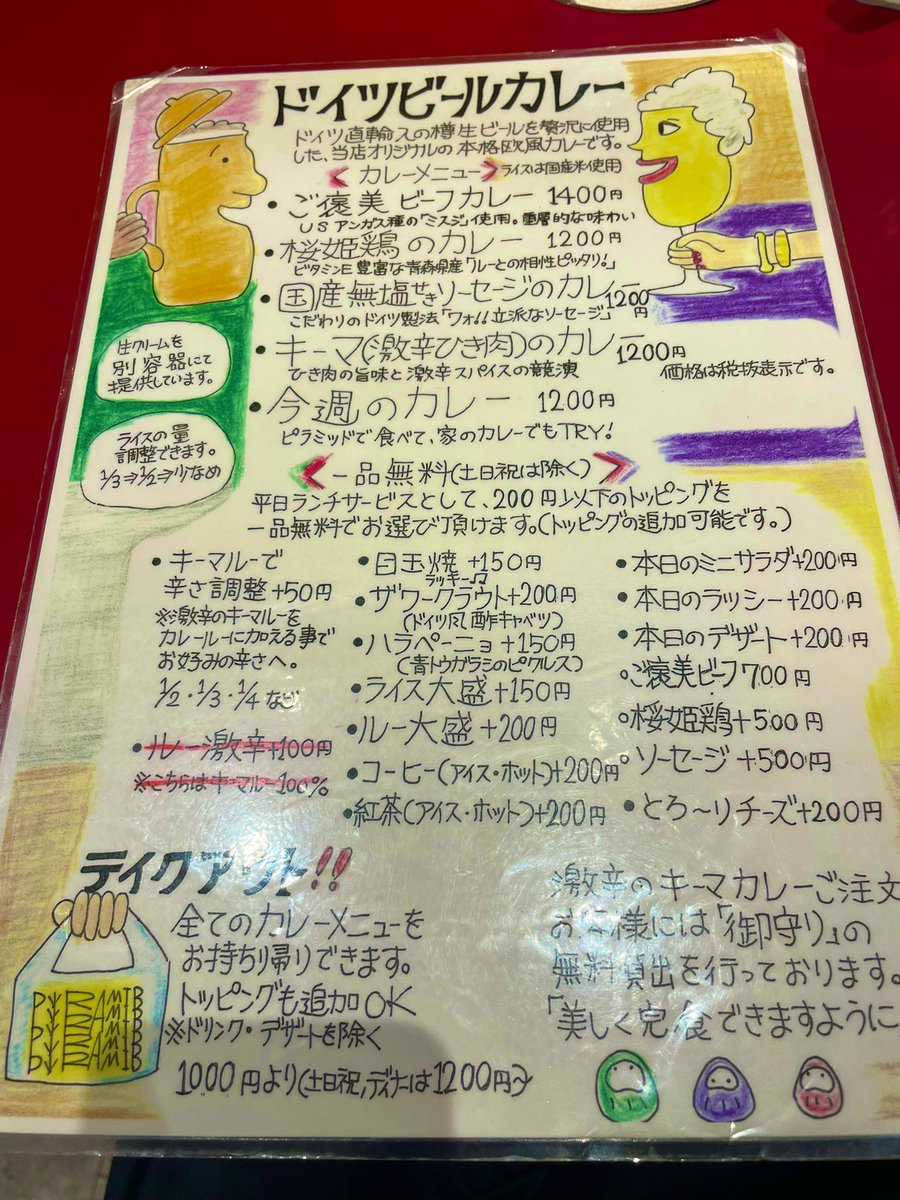 ドイツビールカレー
ドイツ直輸入の樽生ビールを贅沢に使用
した、当店オリジナルの本格欧風カレーです。
カレーメニュー ライスは国産米使用
・ご褒美ビーフカレー 1400円
USアンガス種の「ミスジ」使用。重層的な味わい
・桜姫鶏のカレー 1200円
ビタミンE豊富な青森県産「ルーとの相性ピッタリ!」
・国産無塩せきソーセージのカレー 1200円
こだわりのドイツ製法「ワォ!!立派なソーセージ」
・キーマ(激辛ひき肉)のカレー 1200円
ひき肉の旨味と激辛スパイスの競演
価格は税抜表示です。
・今週のカレー 1200円
ピラミッドで食べて、家のカレーでもTRY!
生クリームを
別容器にて
提供しています。
ライスの量
調整できます。
1/3⇒1/2⇒少なめ
一品無料(土日祝は除く)
平日ランチサービスとして、200円以下のトッピングを
一品無料でお選び頂けます。(トッピングの追加可能です。)
・キーマルーで
辛さ調整+50円
※激辛のキーマルーを
カレールーに加える事で
お好みの辛さへ。
1/2・1/3・1/4など
・カレー激辛+100円
※こちらはキーマルー100%
・目玉焼+150円
ラッキー♫
・ザワークラウト+200円
(ドイツ風酢キャベツ)
・ハラペーニョ+150円
(青トウガラシのピクルス)
・ライス大盛+150円
・ルー大盛+200円
・コーヒー(アイス・ホット)+200円
・紅茶(アイス・ホット)+200円
・本日のミニサラダ+200円
・本日のラッシー+200円
・本日のデザート+200円
ご褒美ビーフ700円
桜姫鶏+500円
ソーセージ+500円
・とろ〜りチーズ+200円
テイクアウト!!
全てのカレーメニューを
お持ち帰りできます。
トッピングも追加OK
※ドリンク・デザートを除く
1000円より(土日祝,ディナーは1200円〜)
激辛のキーマカレーご注文
お客様には「御守り」の
無料貸出を行っております。
「美しく完食できますように